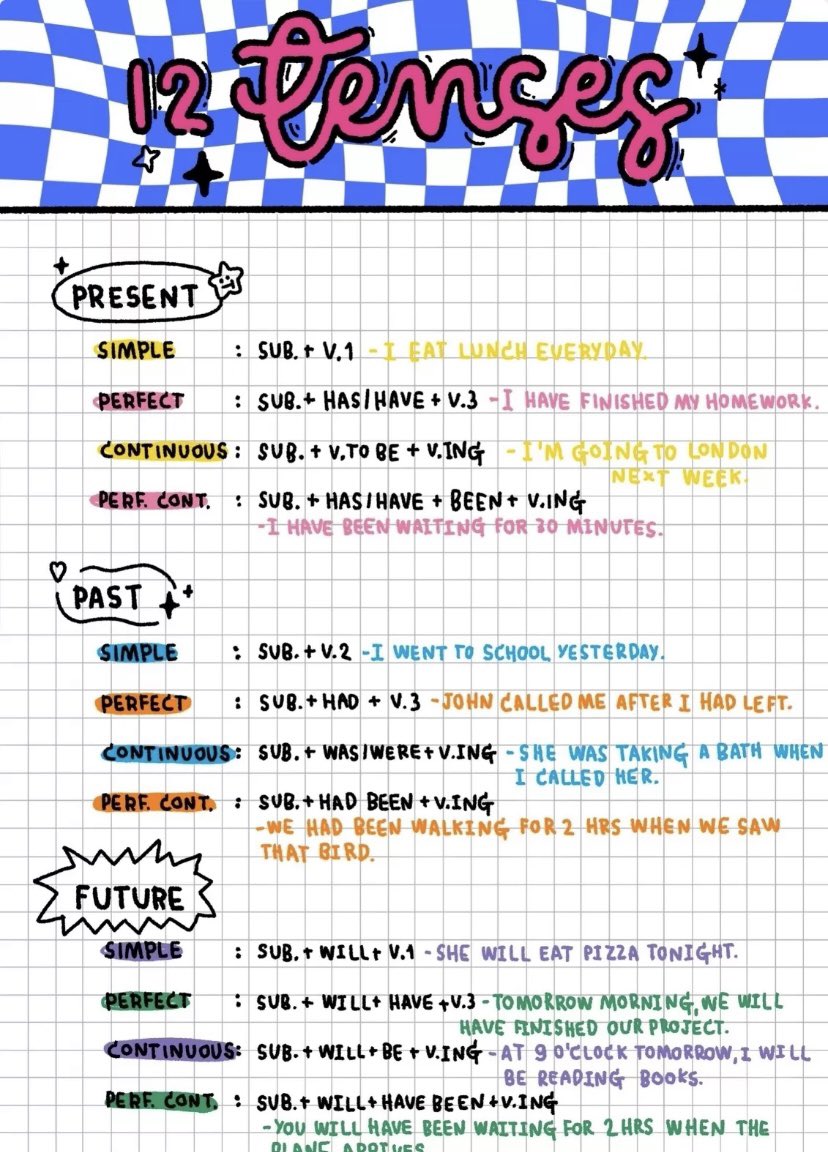 12 tenses
PRESENT
SIMPLE : SUB. + V.1 - I EAT LUNCH EVERYDAY.
PERFECT : SUB.+ HAS/HAVE + V.3 - I HAVE FINISHED MY HOMEWORK.
CONTINUOUS : SUB. + V.TO BE + V.ING - I'M GOING TO LONDON
NEXT WEEK.
PERF. CONT. : SUB. + HAS/HAVE + BEEN + V.ING
-I HAVE BEEN WAITING FOR 30 MINUTES.
PAST
SIMPLE : SUB. + V.2 -I WENT TO SCHOOL YESTERDAY.
PERFECT : SUB.+ HAD + V.3 -JOHN CALLED ME AFTER I HAD LEFT.
CONTINUOUS : SUB. + WAS/WERE + V.ING -SHE WAS TAKING A BATH WHEN
I CALLED HER.
PERF. CONT. : SUB.+ HAD BEEN + V.ING
-WE HAD BEEN WALKING FOR 2 HRS WHEN WE SAW
THAT BIRD.
FUTURE
SIMPLE : SUB. + WILL + V.1 -SHE WILL EAT PIZZA TONIGHT.
PERFECT : SUB. + WILL + HAVE + V.3 -TOMORROW MORNING, WE WILL
HAVE FINISHED OUR PROJECT.
CONTINUOUS : SUB. + WILL + BE + V.ING -AT 9 O'CLOCK TOMORROW, I WILL
BE READING BOOKS.
PERF. CONT. : SUB.+ WILL + HAVE BEEN + V.ING
-YOU WILL HAVE BEEN WAITING FOR 2 HRS WHEN THE
PLANE ARRIVES